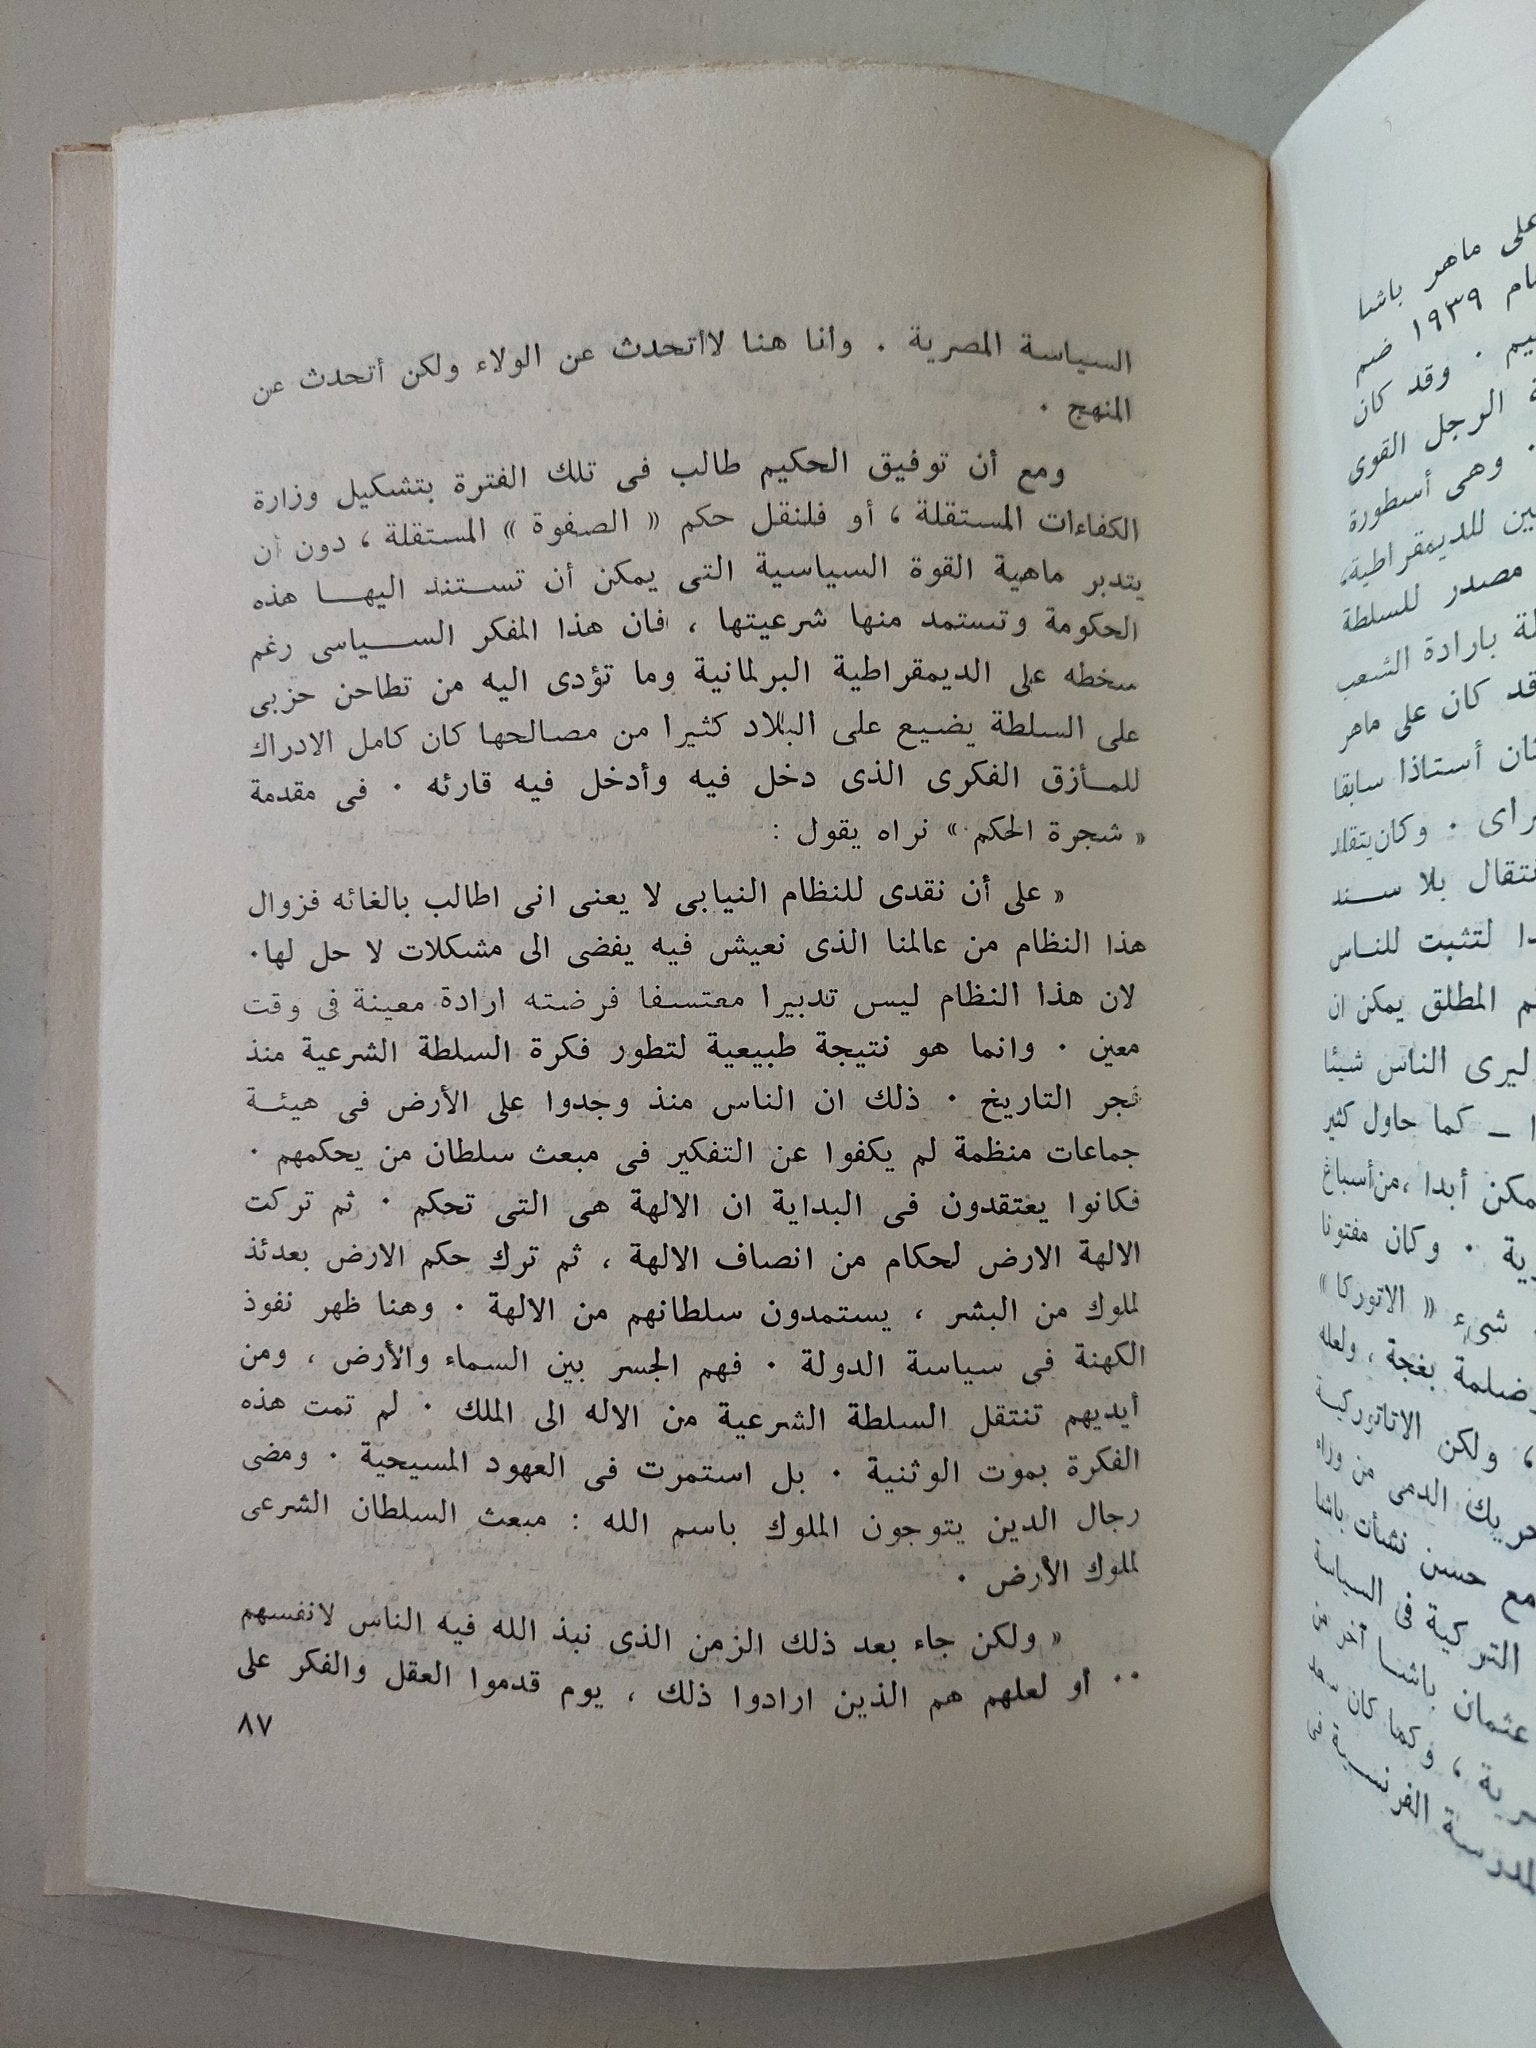 السياسة المصرية . وأنا هنا لاأتحدث عن الولاء ولكن أتحدث عن
المنهج .
ومع أن توفيق الحكيم طالب فى تلك الفترة بتشكيل وزارة
الكفاءات المستقلة ، أو فلنقل حكم « الصفوة » المستقلة ، دون أن
يتدبر ماهية القوة السياسية التى يمكن أن تستند اليها هذه
الحكومة وتستمد منها شرعيتها ، فان هذا المفكر السياسى رغم
سخطه على الديمقراطية البرلمانية وما تؤدى اليه من تطاحن حزبى
على السلطة يضيع على البلاد كثيرا من مصالحها كان كامل الادراك
للمأزق الفكرى الذى دخل فيه وأدخل فيه قارئه . فى مقدمة
« شجرة الحكم » نراه يقول :
« على أن نقدى للنظام النيابى لا يعنى انى اطالب بالغائه فزوال
هذا النظام من عالمنا الذى نعيش فيه يفضى الى مشكلات لا حل لها.
لان هذا النظام ليس تدبيرا معتسفا فرضته ارادة معينة فى وقت
معين . وانما هو نتيجة طبيعية لتطور فكرة السلطة الشرعية منذ
فجر التاريخ . ذلك ان الناس منذ وجدوا على الأرض فى هيئة
جماعات منظمة لم يكفوا عن التفكير فى مبعث سلطان من يحكمهم .
فكانوا يعتقدون فى البداية ان الالهة هى التى تحكم . ثم تركت
الالهة الارض لحكام من انصاف الالهة ، ثم ترك حكم الارض بعدئذ
لملوك من البشر ، يستمدون سلطانهم من الالهة . وهنا ظهر نفوذ
الكهنة فى سياسة الدولة . فهم الجسر بين السماء والأرض ، ومن
أيديهم تنتقل السلطة الشرعية من الاله الى الملك . لم تمت هذه
الفكرة بموت الوثنية . بل استمرت فى العهود المسيحية . ومضى
رجال الدين يتوجون الملوك باسم الله : مبعث السلطان الشرعى
لملوك الأرض .
« ولكن جاء بعد ذلك الزمن الذى نبذ الله فيه الناس لانفسهم
.. أو لعلهم هم الذين ارادوا ذلك ، يوم قدموا العقل والفكر على
٨٧
على ماهر باشا
١٩٣٩ ضم
. وقد كان
الرجل القوى
. وهى أسطورة
للديمقراطية،
مصدر للسلطة
بارادة الشعب
كان على ماهر
أستاذا سابقا
. وكان يتقلد
بلا سند
لتثبت للناس
المطلق يمكن ان
ليرى الناس شيئا
ــ كما حاول كثير
أبدا ،من أسباغ
. وكان مفتونا
شىء « الاتوركا »
بغجة ، ولعله
، ولكن الاتاتوركية
الدمى من وراء
مع حسن نشأت باشا
التركية فى السياسة
عثمان باشا
، وكما كان
الفرنسية فى